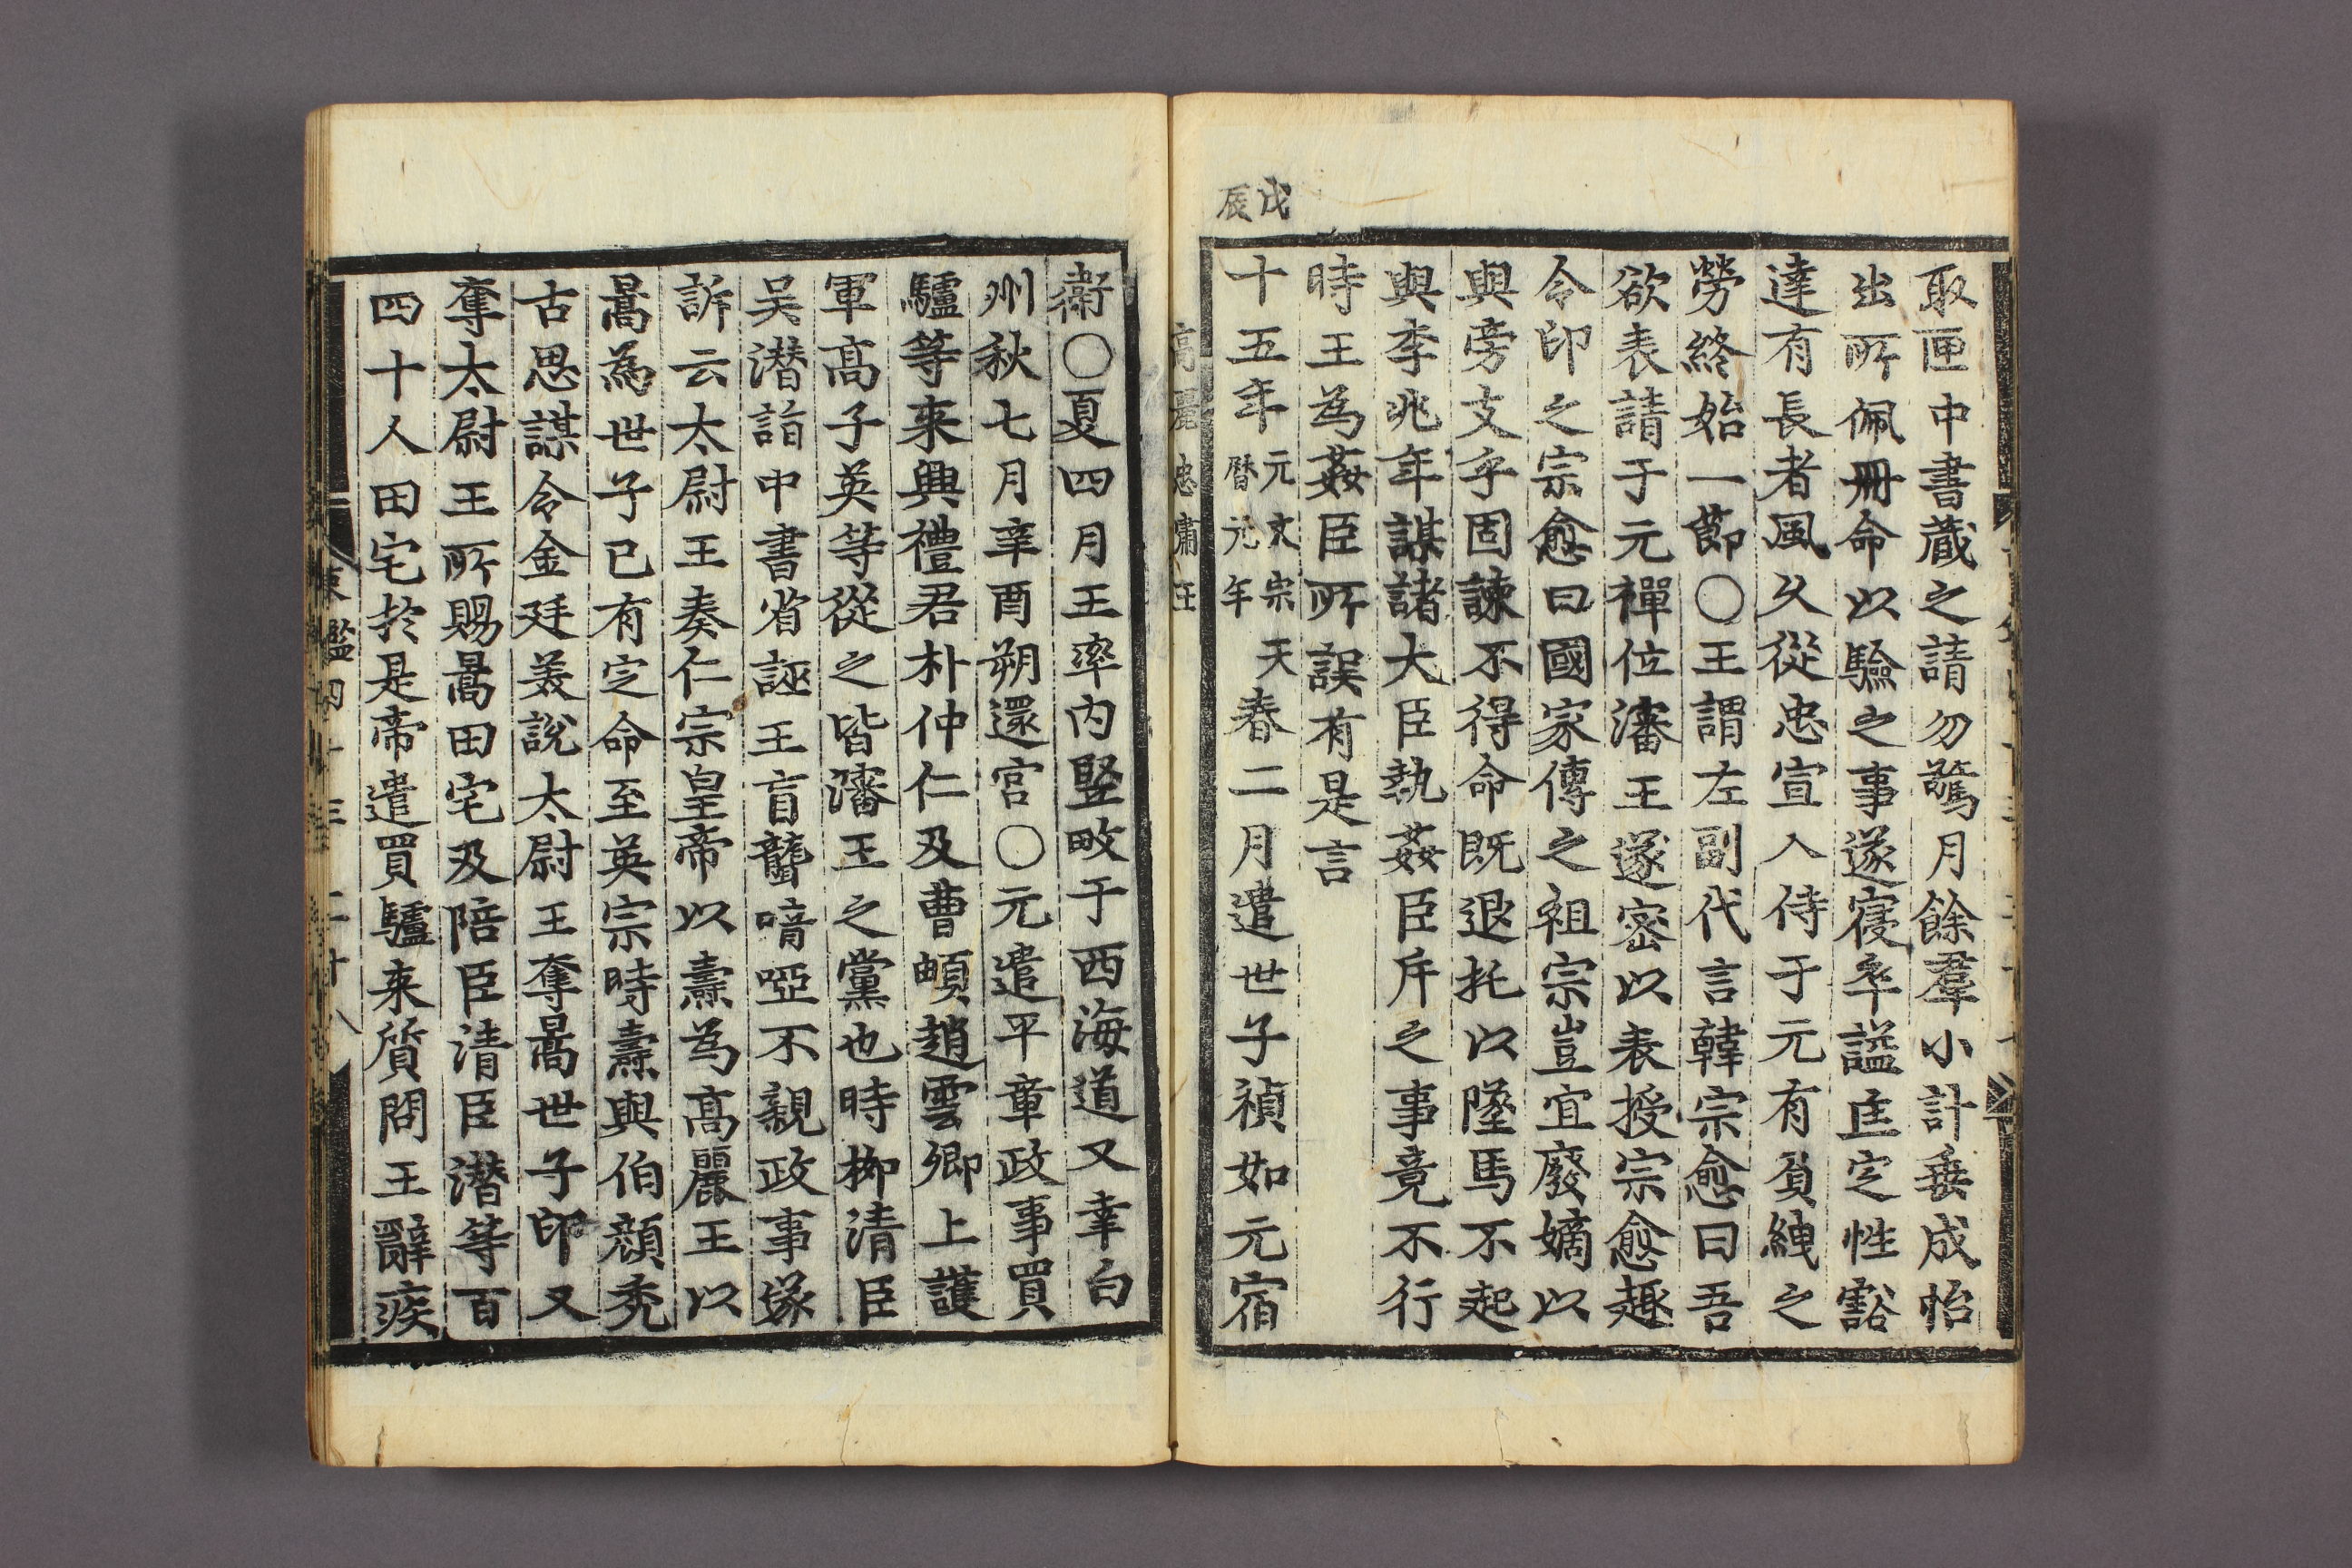 取匣中書蔵之請勿驚月餘羣小計垂成怡
出所佩冊命以驗之事遂寑卒謚匡定性豁
達有長者風久從忠宣入侍于元有負絏之
勞終始一節〇王謂左副代言韓宗愈曰吾
欲表請于元禪位瀋王遂密以表授宗愈趣
令印之宗愈曰國家傳之祖宗豈宜廢嫡以
與旁支乎固諫不得命既退托以墜馬不起
與李兆年謀諸大臣執姦臣斥之事竟不行
時王為姦臣所誤有是言
戊辰
十五年元文宗天暦元年春二月遣世子禎如元宿
高麗忠肅王
衛〇夏四月王率内竪畋于西海道又幸白
州秋七月辛酉朔還宮〇元遣平章政事買
驢等来興禮君朴仲仁及曹頔趙雲卿上護
軍高子英等從之皆瀋王之黨也時柳清臣
吴潜詣中書省誣王盲聾喑啞不親政事嫁
訴云太尉王奏仁宗皇帝以燾為高麗王以
暠為世子已有定命至英宗時燾與伯顔禿
古思謀令金廷羙說太尉王奪暠世子印又
奪太尉王所賜暠田宅及陪臣清臣潜等百
四十人田宅於是帝遣買驢来質問王辭疾
東鑑四十三 二十八